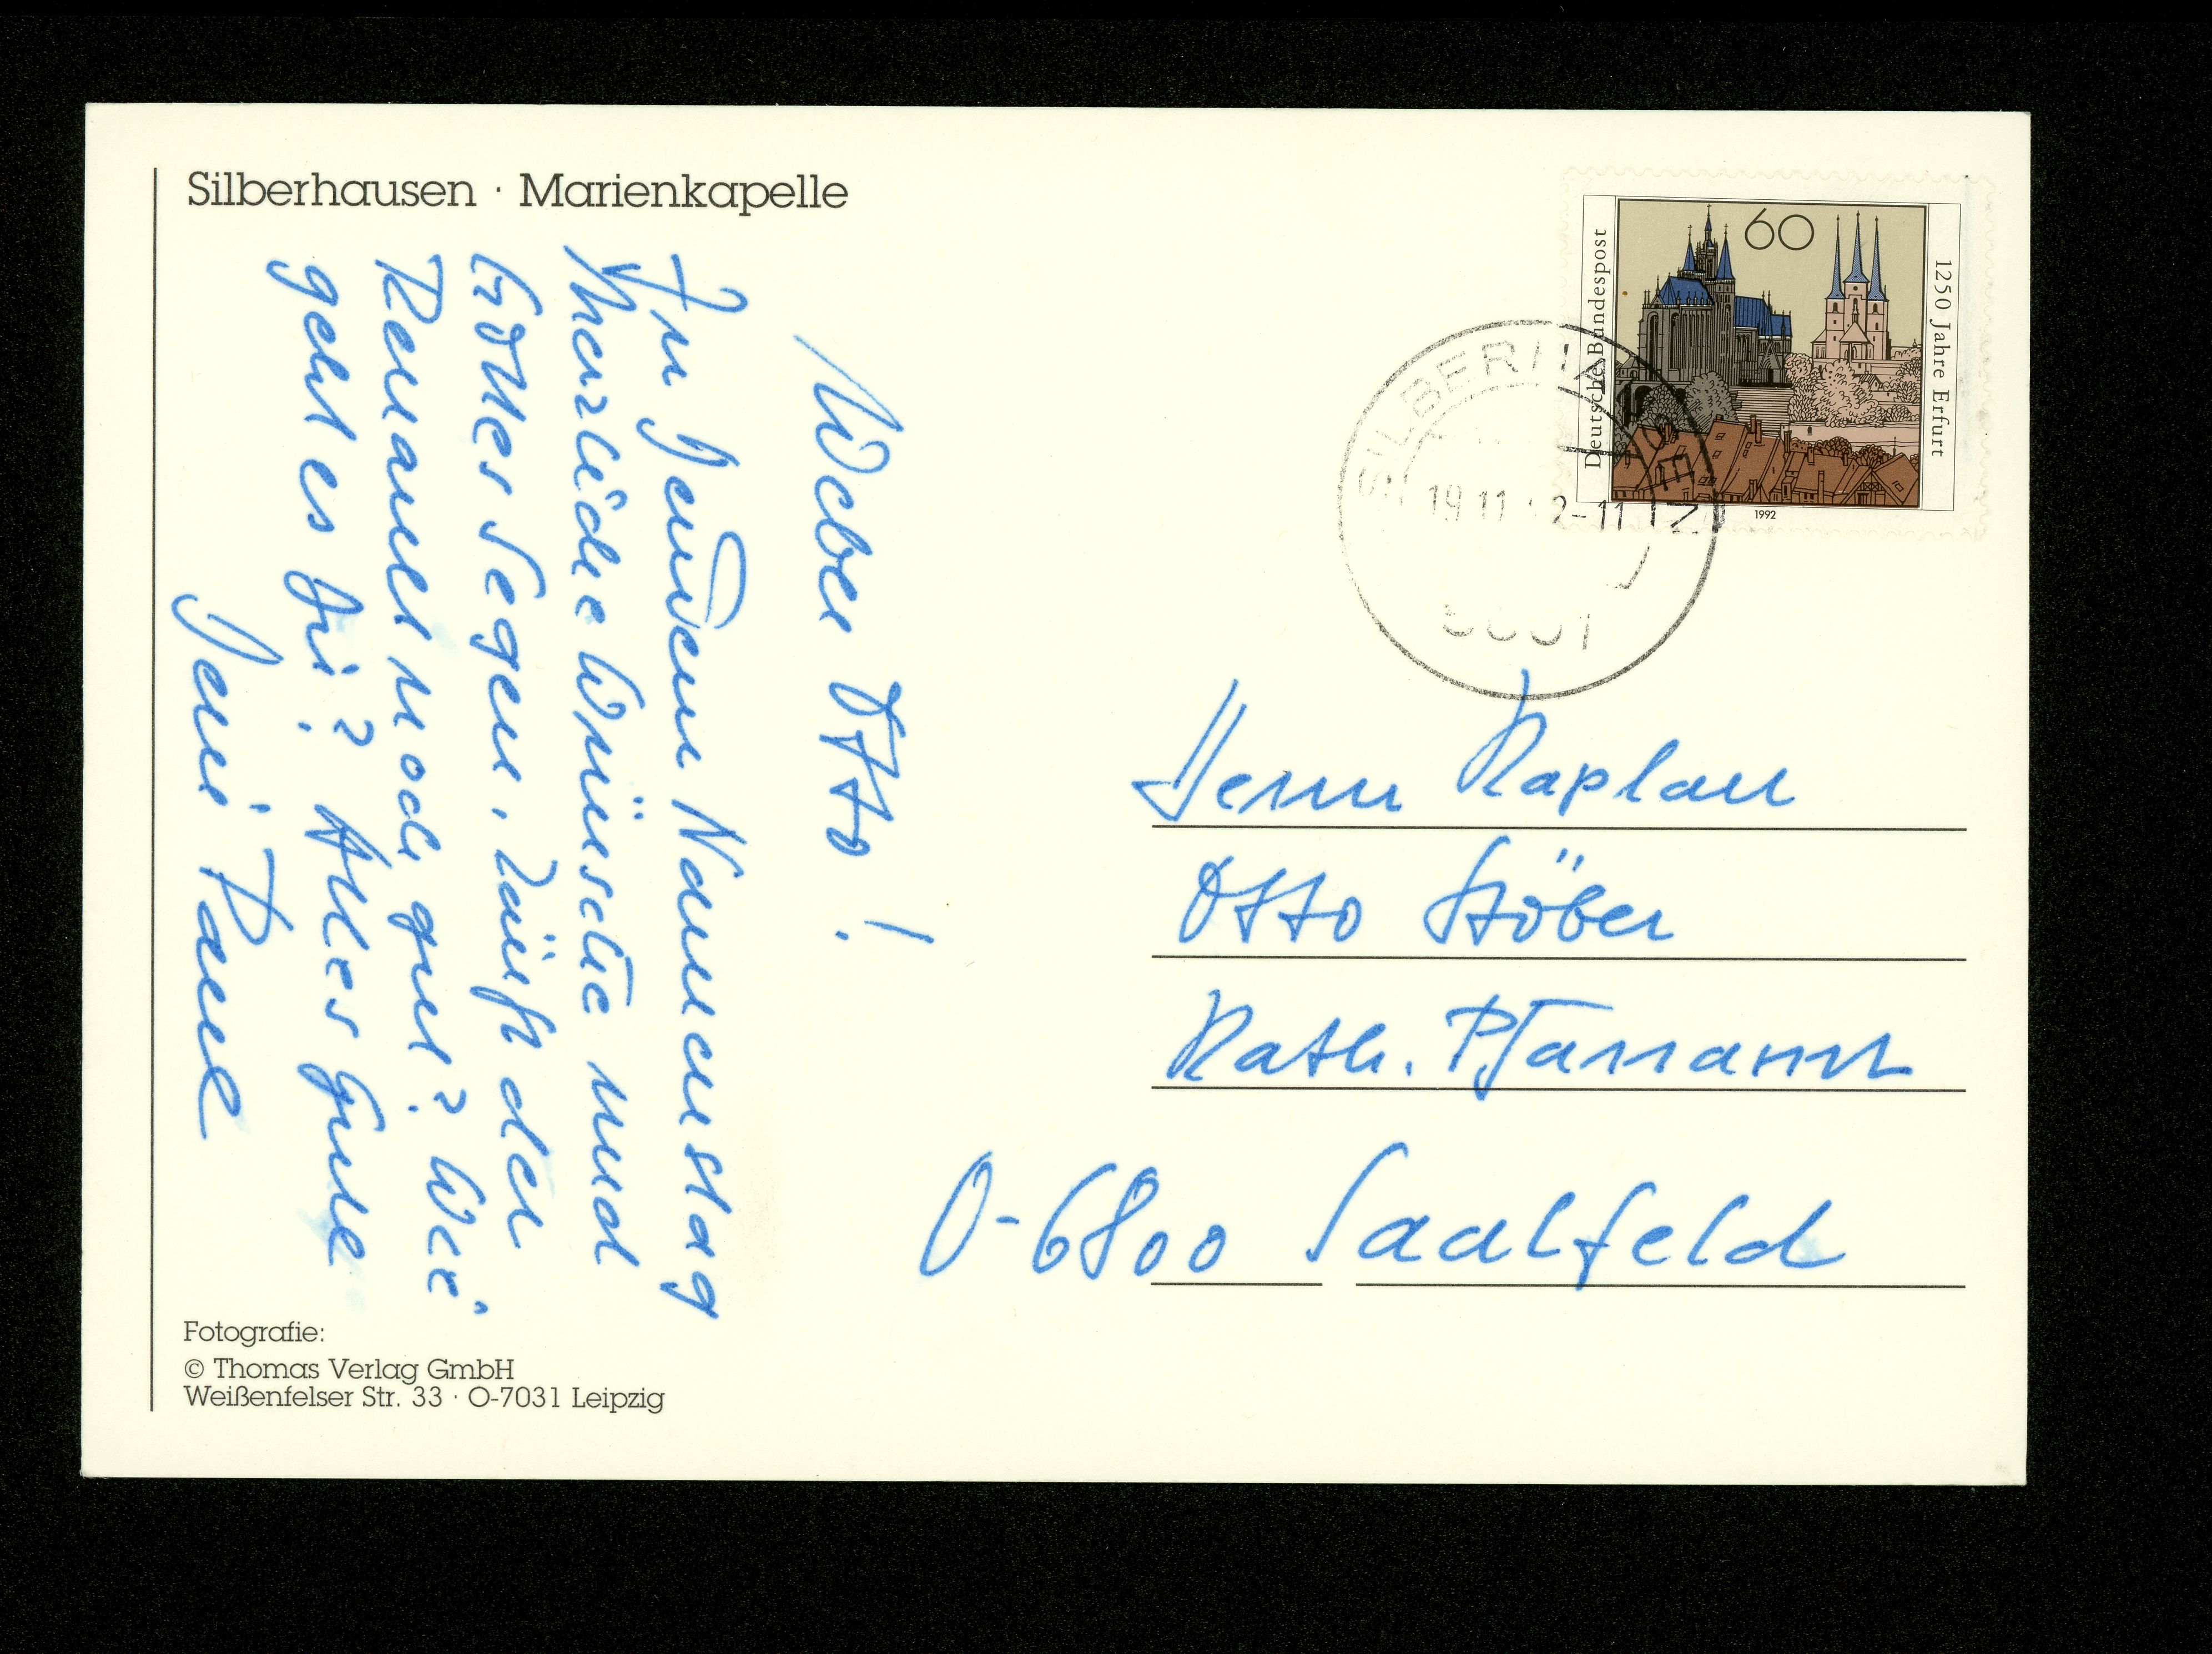 Silberhausen · Marienkapelle
Lieber Otto!
Zu Deinem Namenstag
herzliche Wünsche und
Gottes Segen. Läuft der
Renault noch gut? Wie
geht es Dir? Alles Gute
Dein Paul
Fotografie:
© Thomas Verlag GmbH
Weißenfelser Str. 33 · O-7031 Leipzig
60
Deutsche Bundespost
1250 Jahre Erfurt
1992
SILBERHAUSEN
19 11 2-11
Herrn Kaplan
Otto Stöber
Kath. Pfarramt
O-6800 Saalfeld